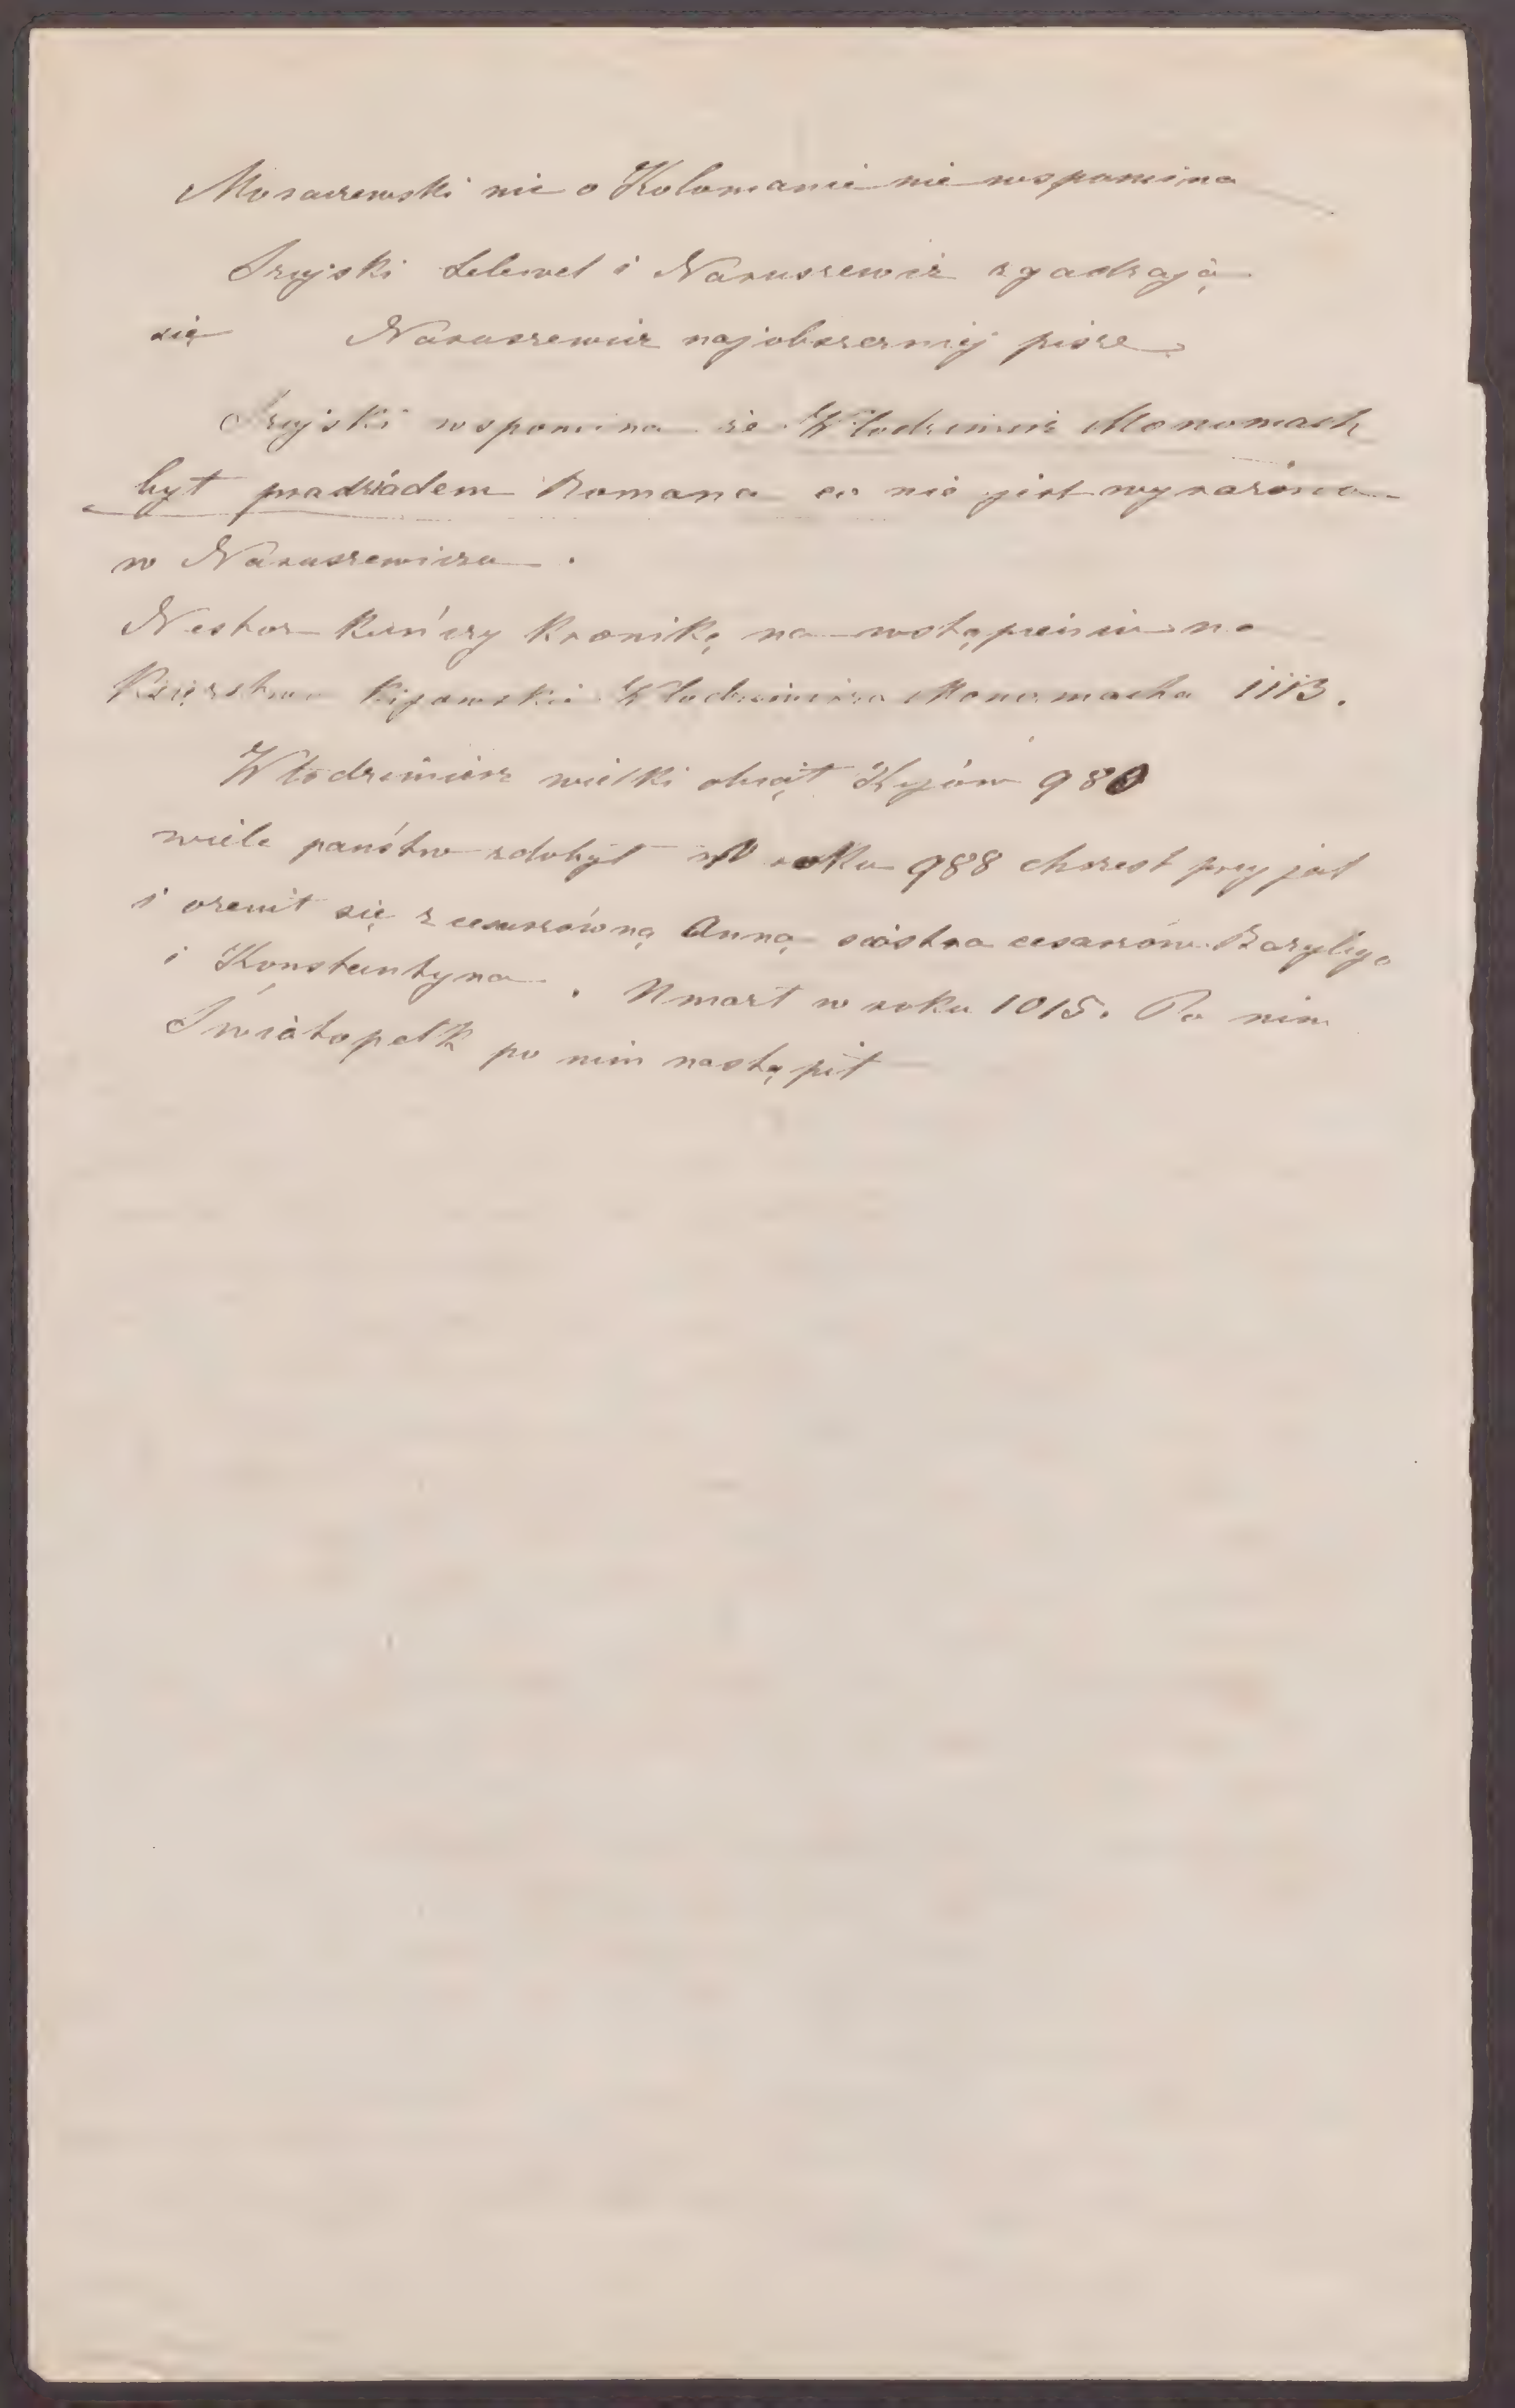 Moraczewski nic o Kolomanie nie wspomina
Szujski Lelewel i Naruszewicz zgadzają
się Naruszewicz najobszerniej pisze
Szujski wspomina że Włodzimierz Monomach
był pradziadem Romana co nie jest wyrażone
w Naruszewiczu.
Nestor kończy kronikę na wstąpieniu na
Księztwo Kijowskie Włodzimierza Monomacha 1113.
Włodzimierz wielki objął Kyjów 980
wiele państw zdobył W roku 988 chrzest przyjął
i ożenił się z cesarzówną Anną siostrą cesarzów Bazylego
i Konstantyna. Umarł w roku 1015. Po nim
Światopełk po nim nastąpił